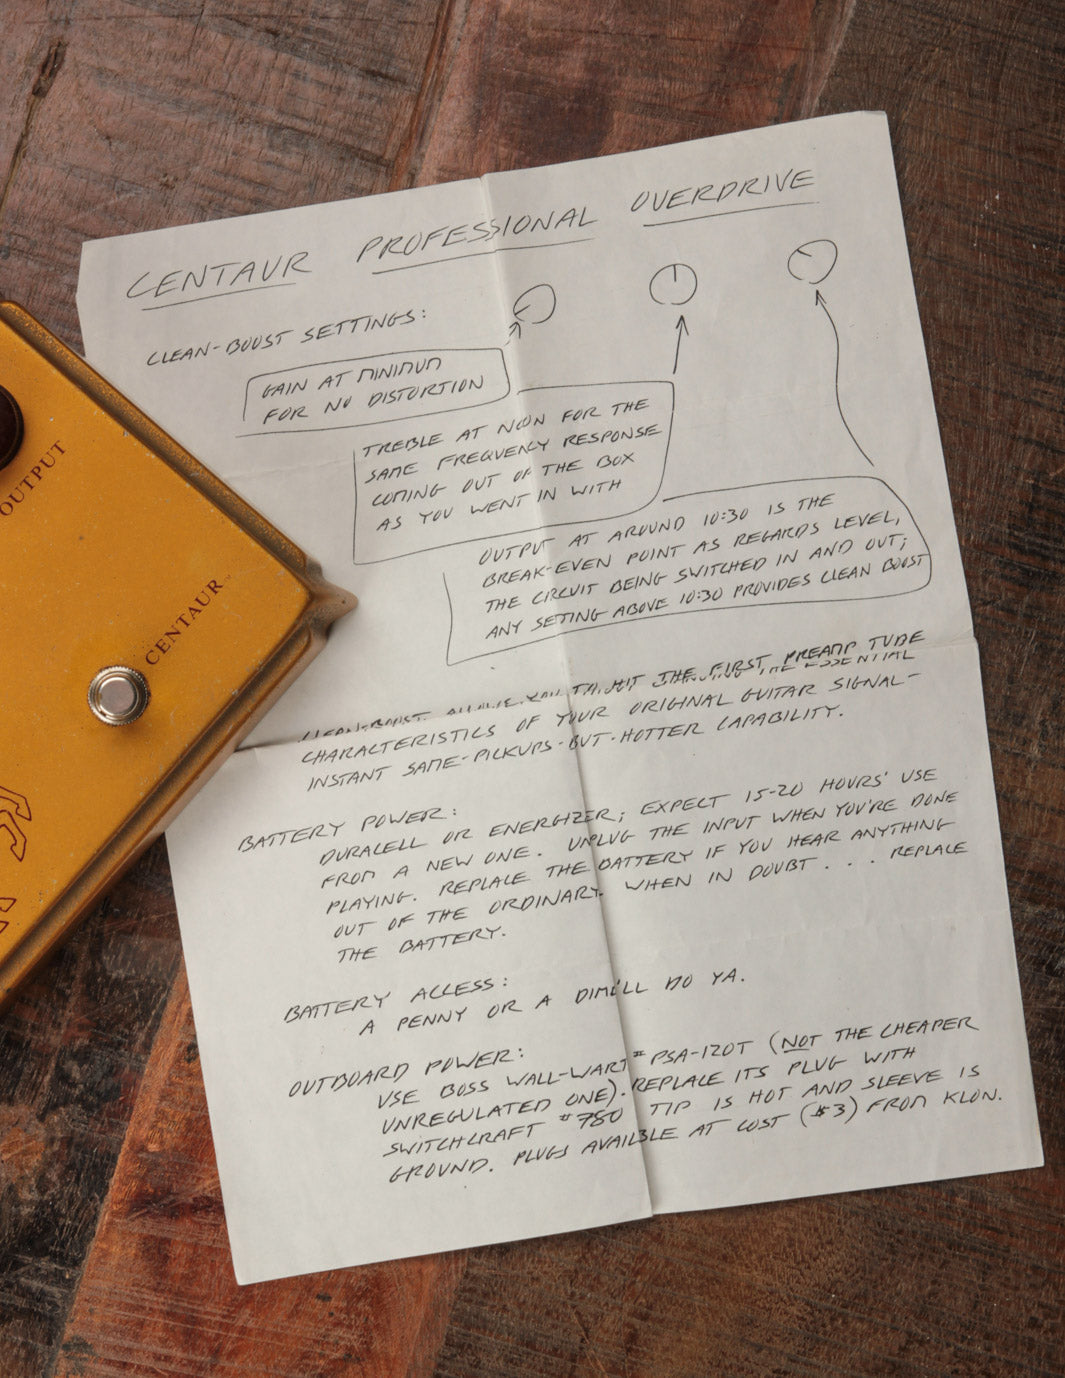 CENTAUR PROFESSIONAL OVERDRIVE
CLEAN-BOOST SETTINGS:
GAIN AT MINIMUM
FOR NO DISTORTION
TREBLE AT NOON FOR THE
SAME FREQUENCY RESPONSE
COMING OUT OF THE BOX
AS YOU WENT IN WITH
OUTPUT AT AROUND 10:30 IS THE
BREAK-EVEN POINT AS REGARDS LEVEL,
THE CIRCUIT BEING SWITCHED IN AND OUT;
ANY SETTING ABOVE 10:30 PROVIDES CLEAN BOOST
CLEAN-BOOST THE FIRST PREAMP TUBE
THE ESSENTIAL
CHARACTERISTICS OF YOUR ORIGINAL GUITAR SIGNAL-
INSTANT SAME-PICKUPS-BUT-HOTTER CAPABILITY.
BATTERY POWER:
DURACELL OR ENERGIZER; EXPECT 15-20 HOURS' USE
FROM A NEW ONE. UNPLUG THE INPUT WHEN YOU'RE DONE
PLAYING. REPLACE THE BATTERY IF YOU HEAR ANYTHING
OUT OF THE ORDINARY. WHEN IN DOUBT . . . REPLACE
THE BATTERY.
BATTERY ACCESS:
A PENNY OR A DIME'LL DO YA.
OUTBOARD POWER:
USE BOSS WALL-WART # PSA-120T (NOT THE CHEAPER
UNREGULATED ONE). REPLACE ITS PLUG WITH
SWITCHCRAFT #780 TIP IS HOT AND SLEEVE IS
GROUND. PLUGS AVAILBLE AT COST ($3) FROM KLON.
OUTPUT
CENTAUR